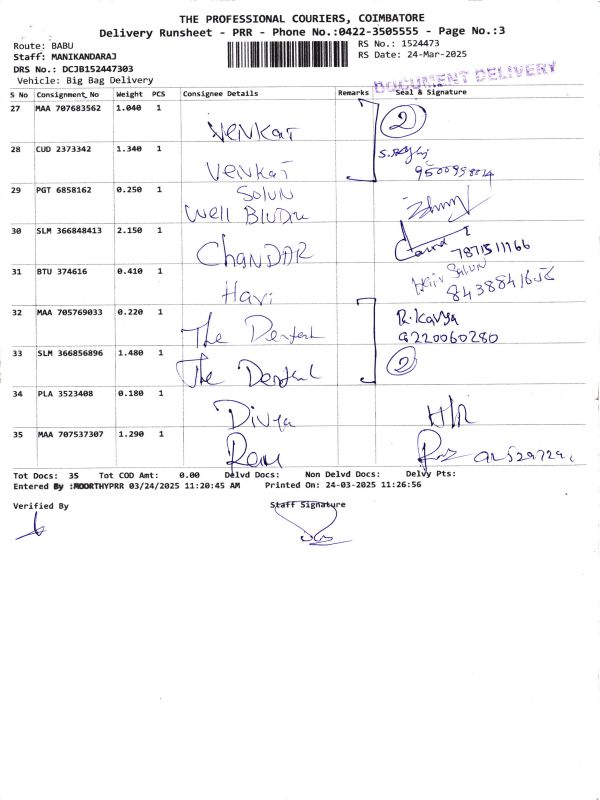 THE PROFESSIONAL COURIERS, COIMBATORE
Delivery Runsheet - PRR - Phone No.:0422-3505555 - Page No.:3
Route: BABU
RS No.: 1524473
Staff: MANIKANDARAJ
RS Date: 24-Mar-2025
DRS No.: DCJB152447303
Vehicle: Big Bag Delivery
DOCUMENT DELIVERY
S No Consignment_No Weight PCS Consignee Details Remarks Seal & Signature
27 MAA 707683562 1.040 1 Venkat 2
28 CUD 2373342 1.340 1 Venkat
29 PGT 6858162 0.250 1 Salun
Well
30 SLM 366848413 2.150 1 Chandar 7871511166
31 BTU 374616 0.410 1 Hari Hair Salun
32 MAA 705769033 0.220 1 The R.Kavya
9220060280
33 SLM 366856896 1.480 1 The 2
34 PLA 3523408 0.180 1 Divya H/R
35 MAA 707537307 1.290 1 Ram
Tot Docs: 35 Tot COD Amt: 0.00 Delvd Docs: Non Delvd Docs: Delvy Pts:
Entered By :MOORTHYPRR 03/24/2025 11:20:45 AM Printed On: 24-03-2025 11:26:56
Verified By Staff Signature